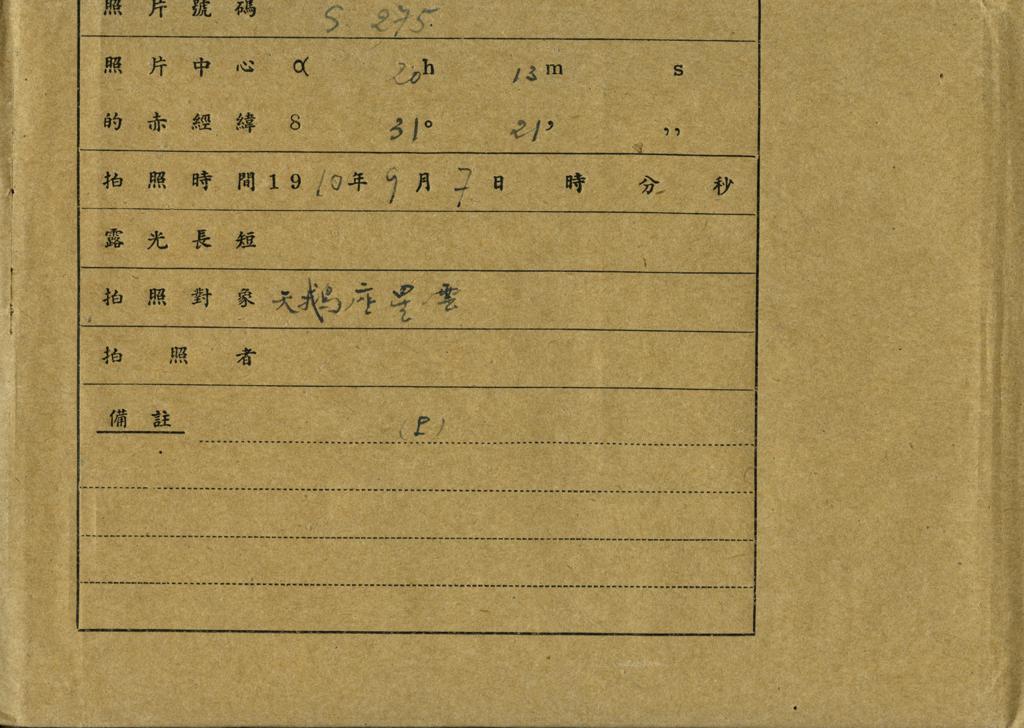 照片號碼 S 275
照片中心 α 20h 13m s
的赤經緯 8 31° 21' ,,
拍照時間 1910年9月7日 時 分 秒
露光長短
拍照對象 天鵝座星雲
拍照者
備註 (P)